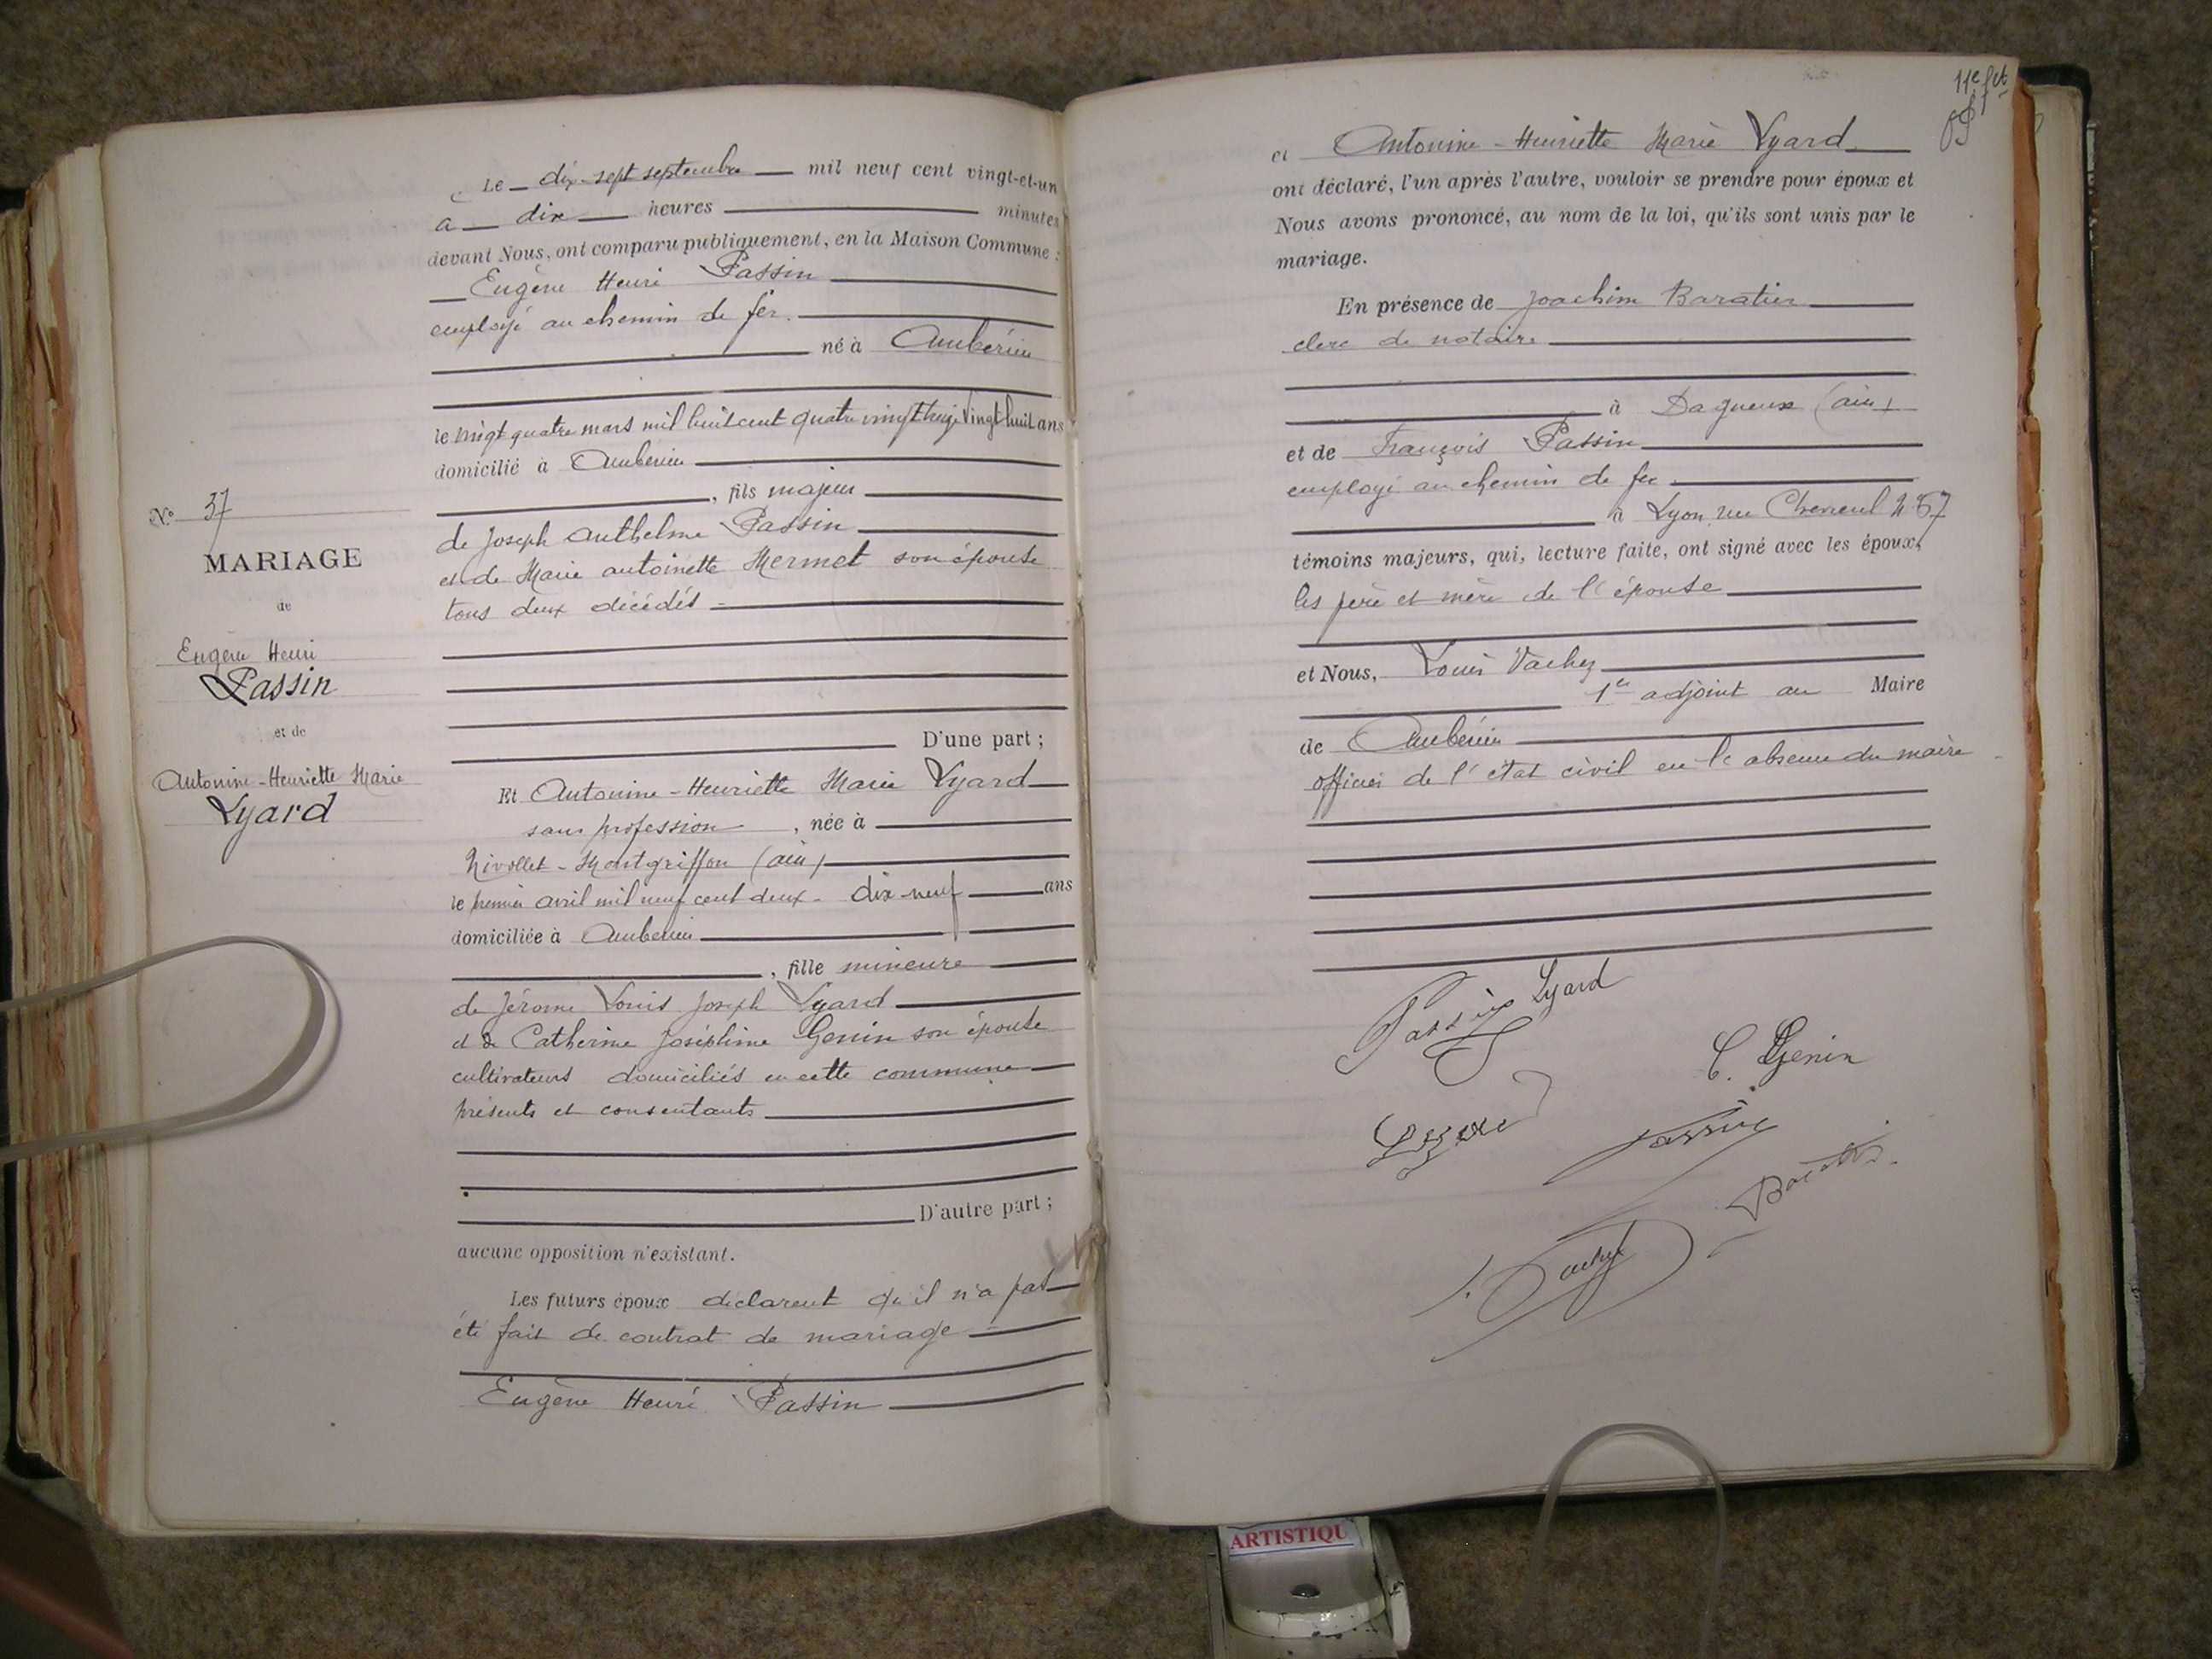 Le dix-sept septembre mil neuf cent vingt-et-un
à dix heures minutes
devant Nous, ont comparu publiquement, en la Maison Commune :
Eugène Henri Passin
employé au chemin de fer.
né à Ambérieu
le vingt quatre mars mil huit cent quatre vingt treize vingt huit ans
domicilié à Ambérieu
, fils majeur
de Joseph Anthelme Passin
et de Marie antoinette Mermet son épouse
tous deux décédés
N° 37
MARIAGE
de
Eugène Henri
Passin
et de
Antonine-Henriette Marie
Lyard
D'une part ;
Et Antonine-Henriette Marie Lyard
sans profession , née à
Nivollet-Montgriffon (ain)
le premier avril mil neuf cent deux - dix-neuf ans
domiciliée à Ambérieu
, fille mineure
de Jérome Louis Joseph Lyard
et de Catherine Joséphine Genin son épouse
cultivateurs domiciliés en cette commune
présents et consentants
D'autre part ;
aucune opposition n'existant.
Les futurs époux déclarent qu'il n'a pas
été fait de contrat de mariage
Eugène Henri Passin
11e fet
et Antonine-Henriette Marie Lyard
ont déclaré, l'un après l'autre, vouloir se prendre pour époux et
Nous avons prononcé, au nom de la loi, qu'ils sont unis par le
mariage.
En présence de Joachim Baratier
clerc de notaire
à Dagneux (ain)
et de François Passin
employé au chemin de fer
à Lyon rue Chevreul
témoins majeurs, qui, lecture faite, ont signé avec les époux,
les père et mère de l'épouse
et Nous, Louis Vachez
1er adjoint au Maire
de Ambérieu
officier de l'état civil en l'absence du maire
Passin Lyard
C. Genin
Lyard
Passin
ARTISTIQU